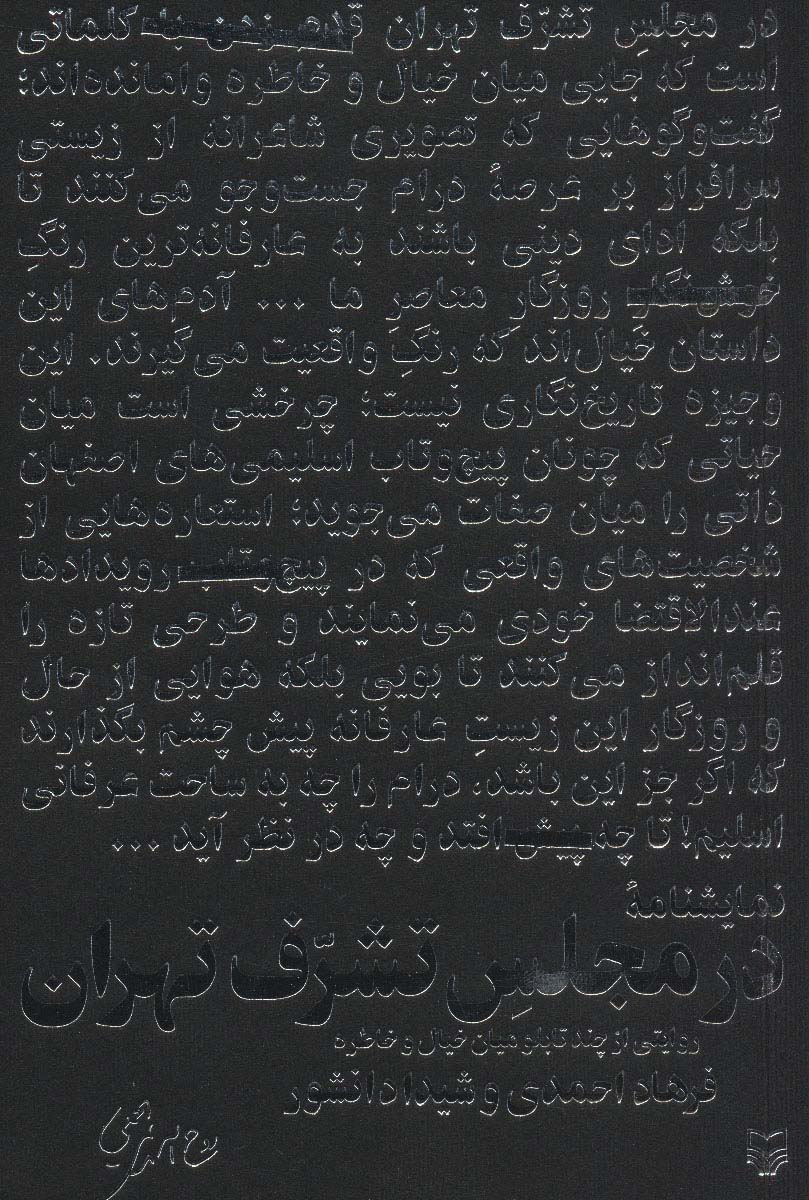 در مجلسِ تشرّف تهران قدم‌زدن با کلماتی
است که جایی میان خیال و خاطره وامانده‌اند؛
گفت‌وگوهایی که تصویری شاعرانه از زیستی
سرافراز بر عرصهٔ درام جست‌وجو می‌کنند تا
بلکه ادای دینی باشند به عارفانه‌ترین رنگِ
روزگارِ معاصرِ ما ... آدم‌های این
داستان خیال‌اند که رنگِ واقعیت می‌گیرند. این
وجیزه تاریخ‌نگاری نیست؛ چرخشی است میان
حیاتی که چونان پیچ‌وتاب اسلیمی‌های اصفهان
ذاتی را میان صفات می‌جوید؛ استعاره‌هایی از
شخصیت‌های واقعی که در پیچ‌وتاب رویدادها
عندالاقتضا خودی می‌نمایند و طرحی تازه را
قلم‌انداز می‌کنند تا بویی بلکه هوایی از حال
و روزگار این زیستِ عارفانه پیش چشم بگذارند
که اگر جز این باشد، درام را چه به ساحت عرفاتی
اسلیم! تا چه پیش افتد و چه در نظر آید ...
نمایشنامهٔ
در مجلسِ تشرّف تهران
روایتی از چند تابلو میان خیال و خاطره
فرهاد احمدی و شیدا دانشور